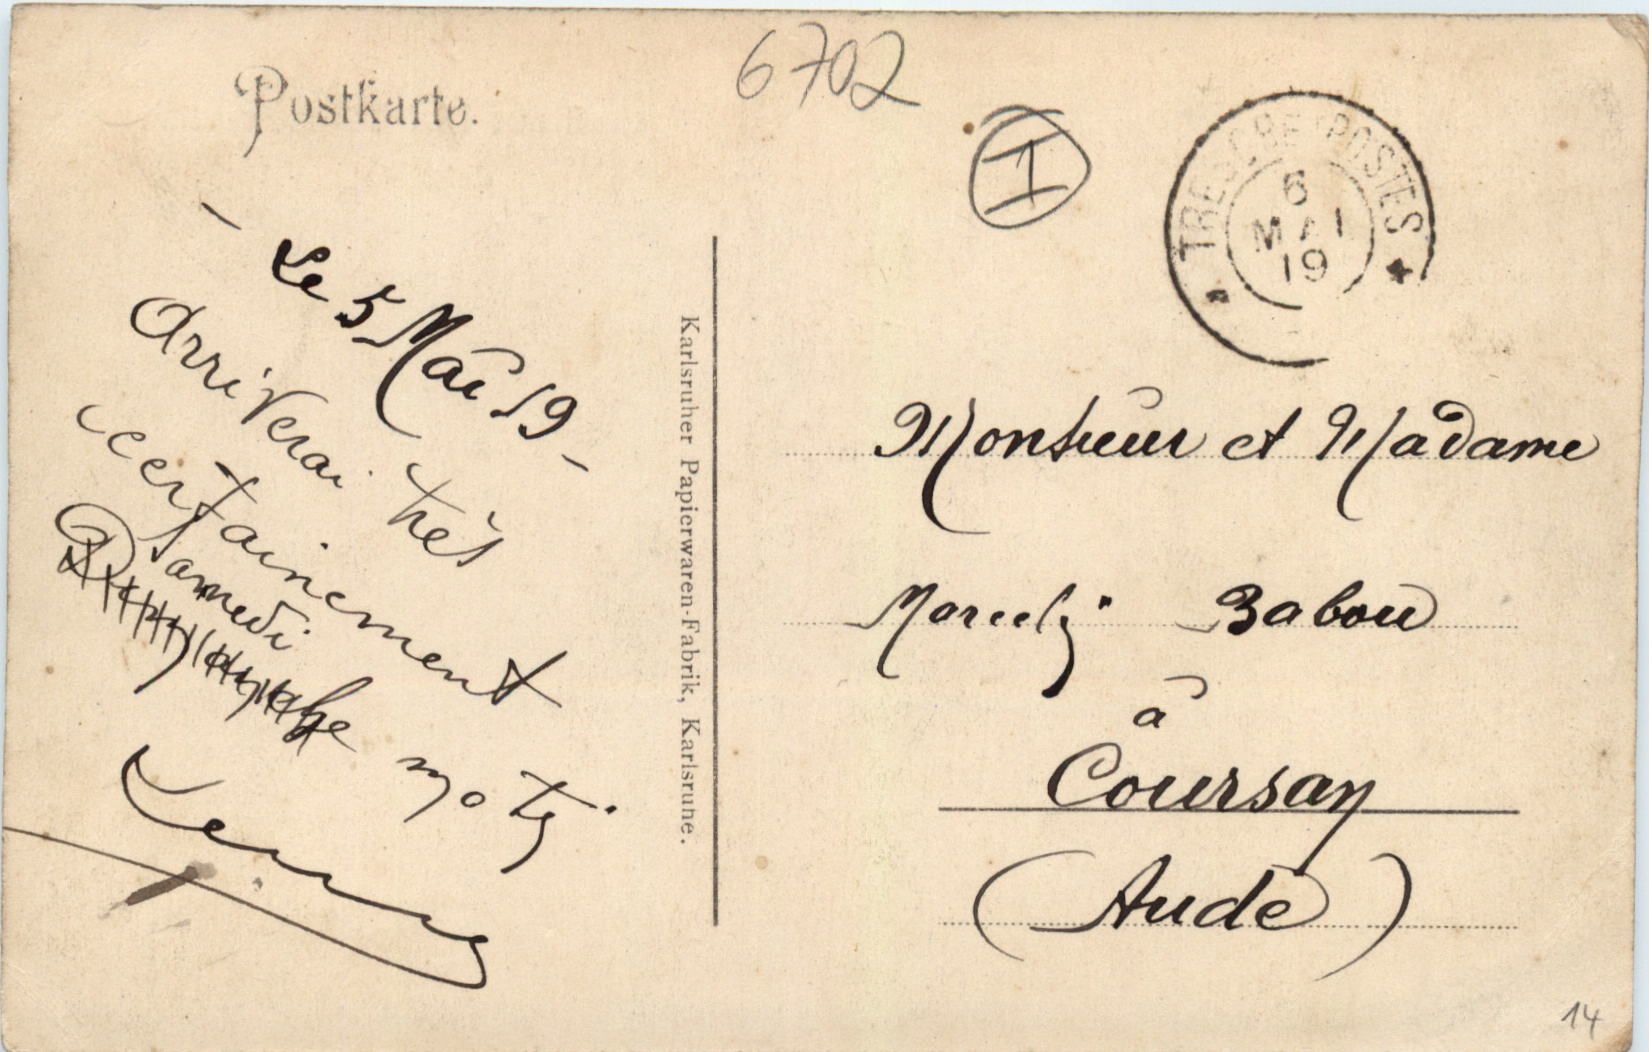 Postkarte.
6702
I
TRESOR ET POSTES
6
MAI
19
- Le 5 Mai 19 -
Arriverai très
certainement
Samedi
Karlsruher Papierwaren-Fabrik, Karlsruhe.
Monsieur et Madame
Babou
à
Coursan
(Aude)
14